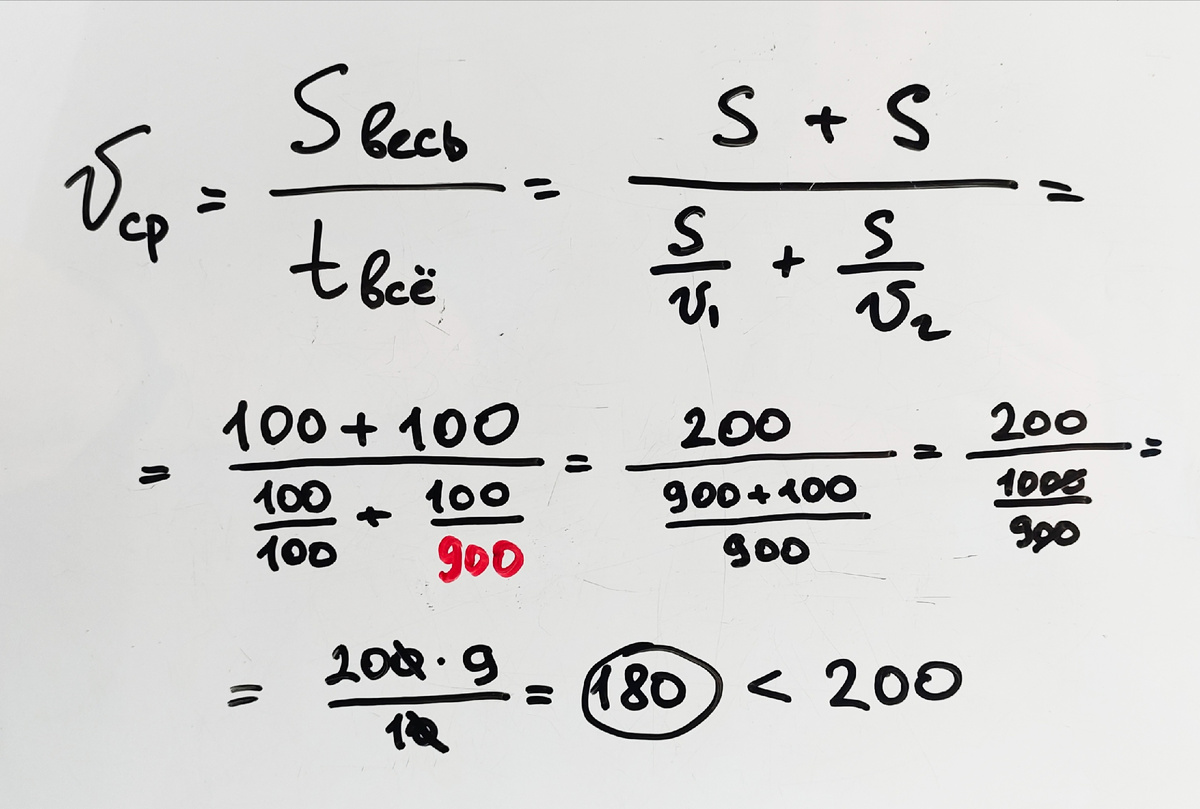 v_ср = S весь / t всё = (S + S) / (S/v₁ + S/v₂) =
= (100 + 100) / (100/100 + 100/900) = 200 / ((900 + 100)/900) = 200 / (1000/900) =
= (200 · 9) / 10 = 180 < 200